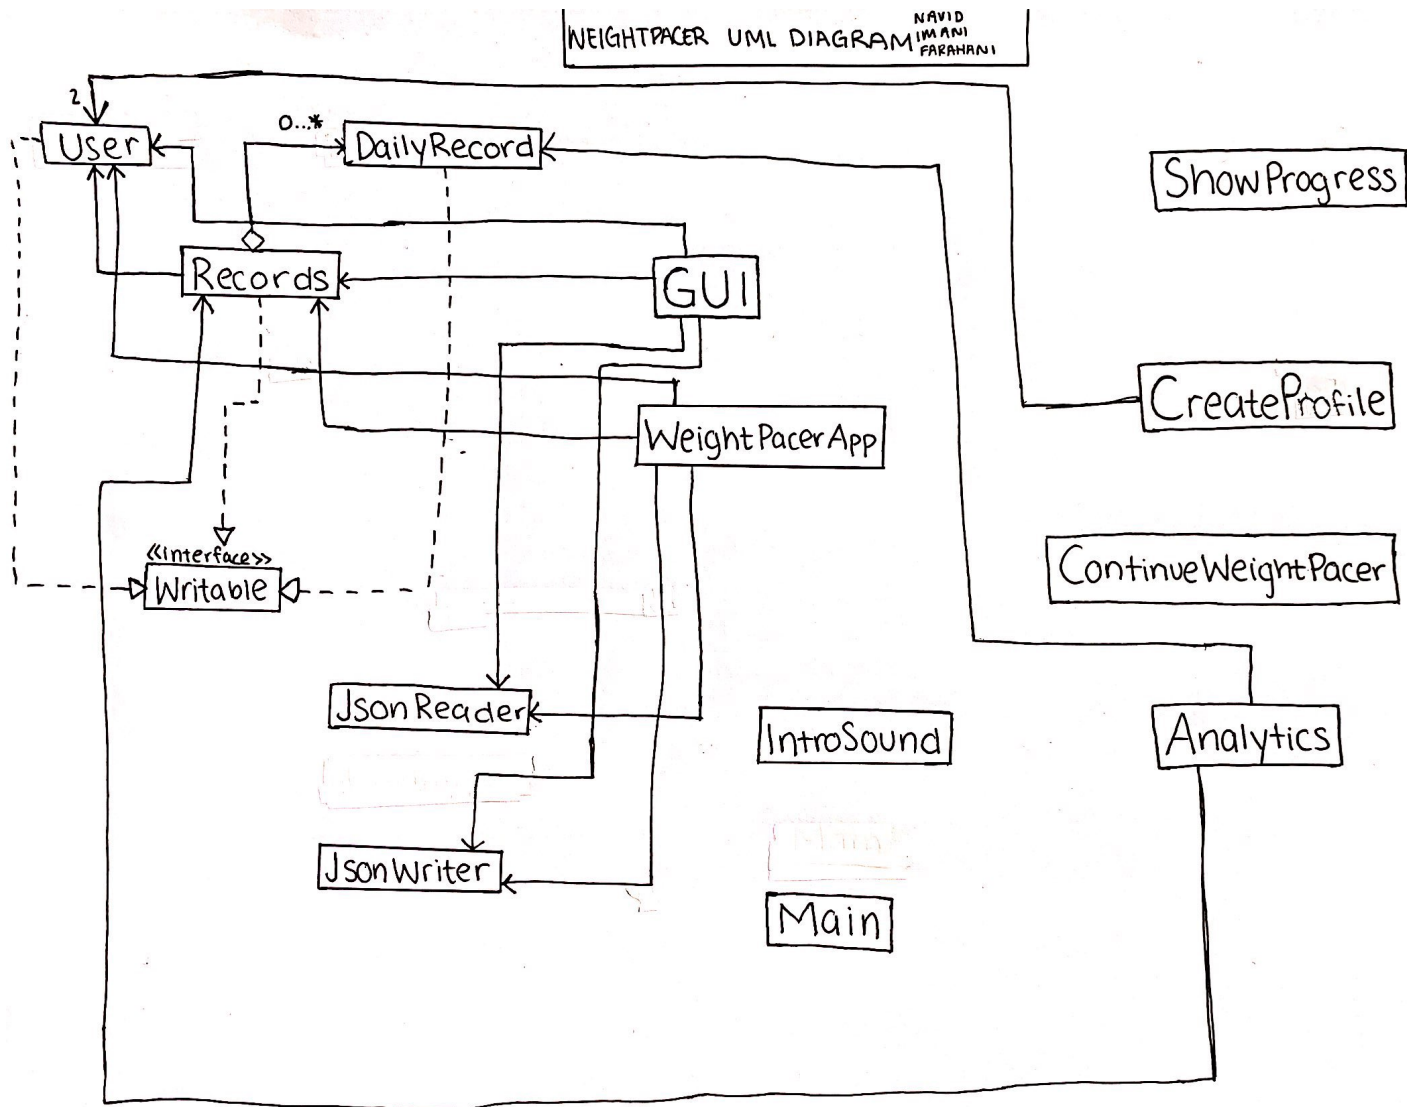 WEIGHTPACER UML DIAGRAM
NAVID
IMANI
FARAHANI
2
User
0...*
DailyRecord
ShowProgress
Records
GUI
CreateProfile
WeightPacerApp
<<interface>>
Writable
ContinueWeightPacer
JsonReader
IntroSound
Analytics
JsonWriter
Main